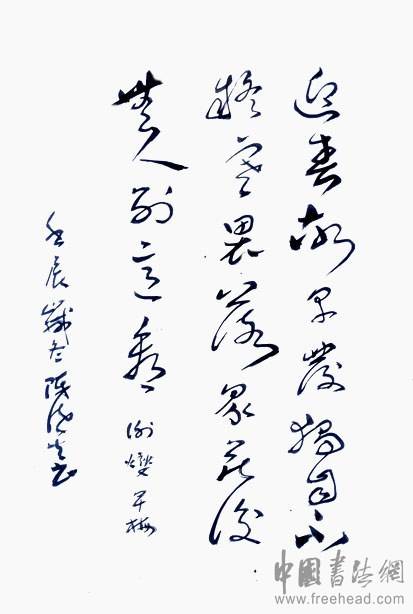 迎春故早發獨自不
疑寒畏落眾花後
無人別意看 谢燮早梅
壬辰歲冬陈书
中國書法網
www.freehead.com